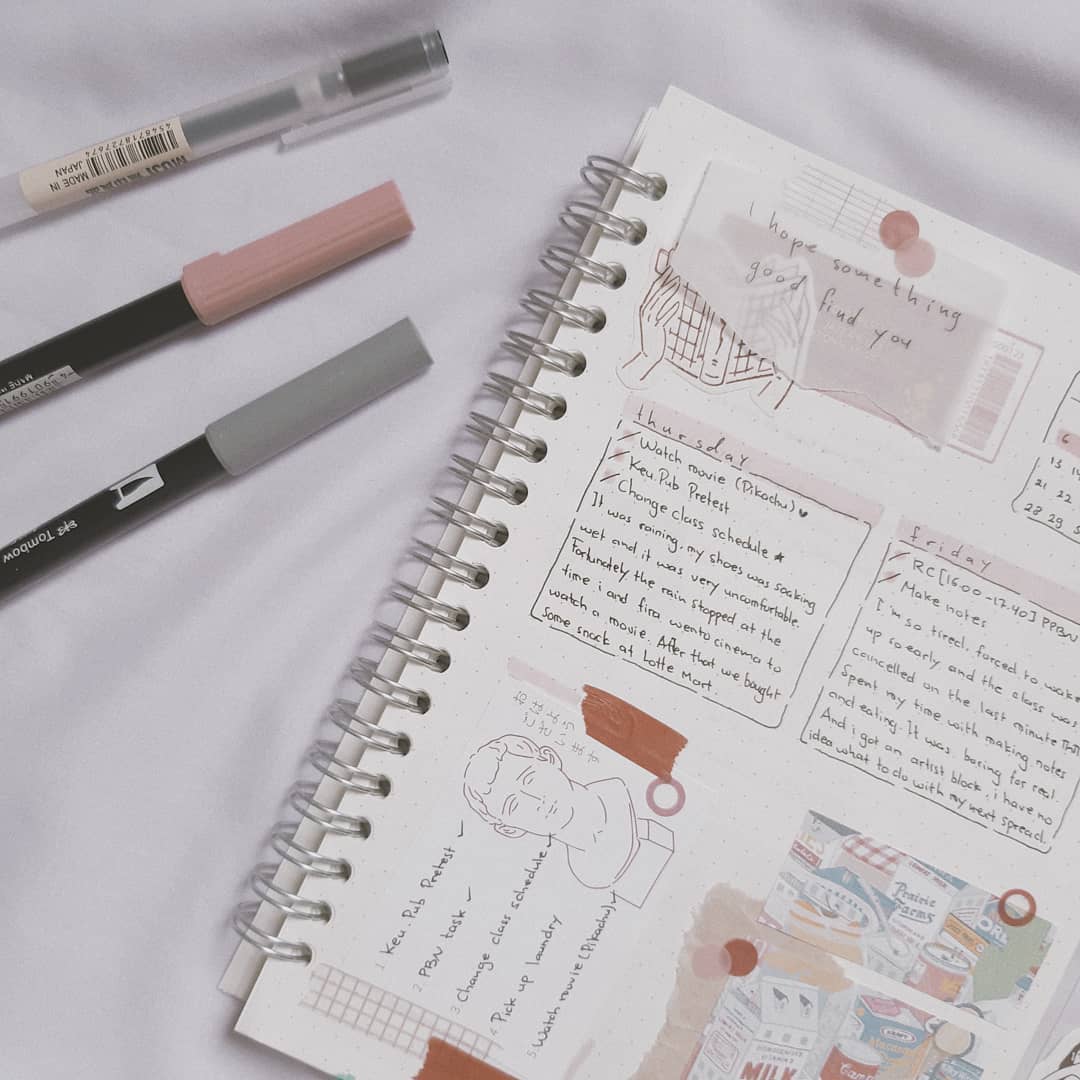 4548718727674
MADE IN JAPAN
MUJI
MADE IN
Tombow
I hope something
good find you
thursday
Watch movie (Pikachu) ♥
Keu.Pub Pretest
Change class schedule ★
It was raining, my shoes was soaking
wet and it was very uncomfortable.
Fortunately the rain stopped at the
time i and fira went to cinema to
watch a movie. After that we bought
some snack at Lotte Mart
friday
RC [16.00 - 17.40] PPBN
Make notes
I'm so tired, forced to wake
up so early and the class was
cancelled on the last minute
Spent my time with making notes
and eating. It was boring for real.
And i got an artist block, i have no
idea what to do with my next spread.
6
13
21 22
28 29
1. Keu.Pub Pretest ✓
2. PBN task ✓
3. Change class schedule ✓
4. Pick up laundry
5. Watch movie (Pikachu) ✓
Prairie
Farms
HOMOGENIZED
VITAMIN D
MILK